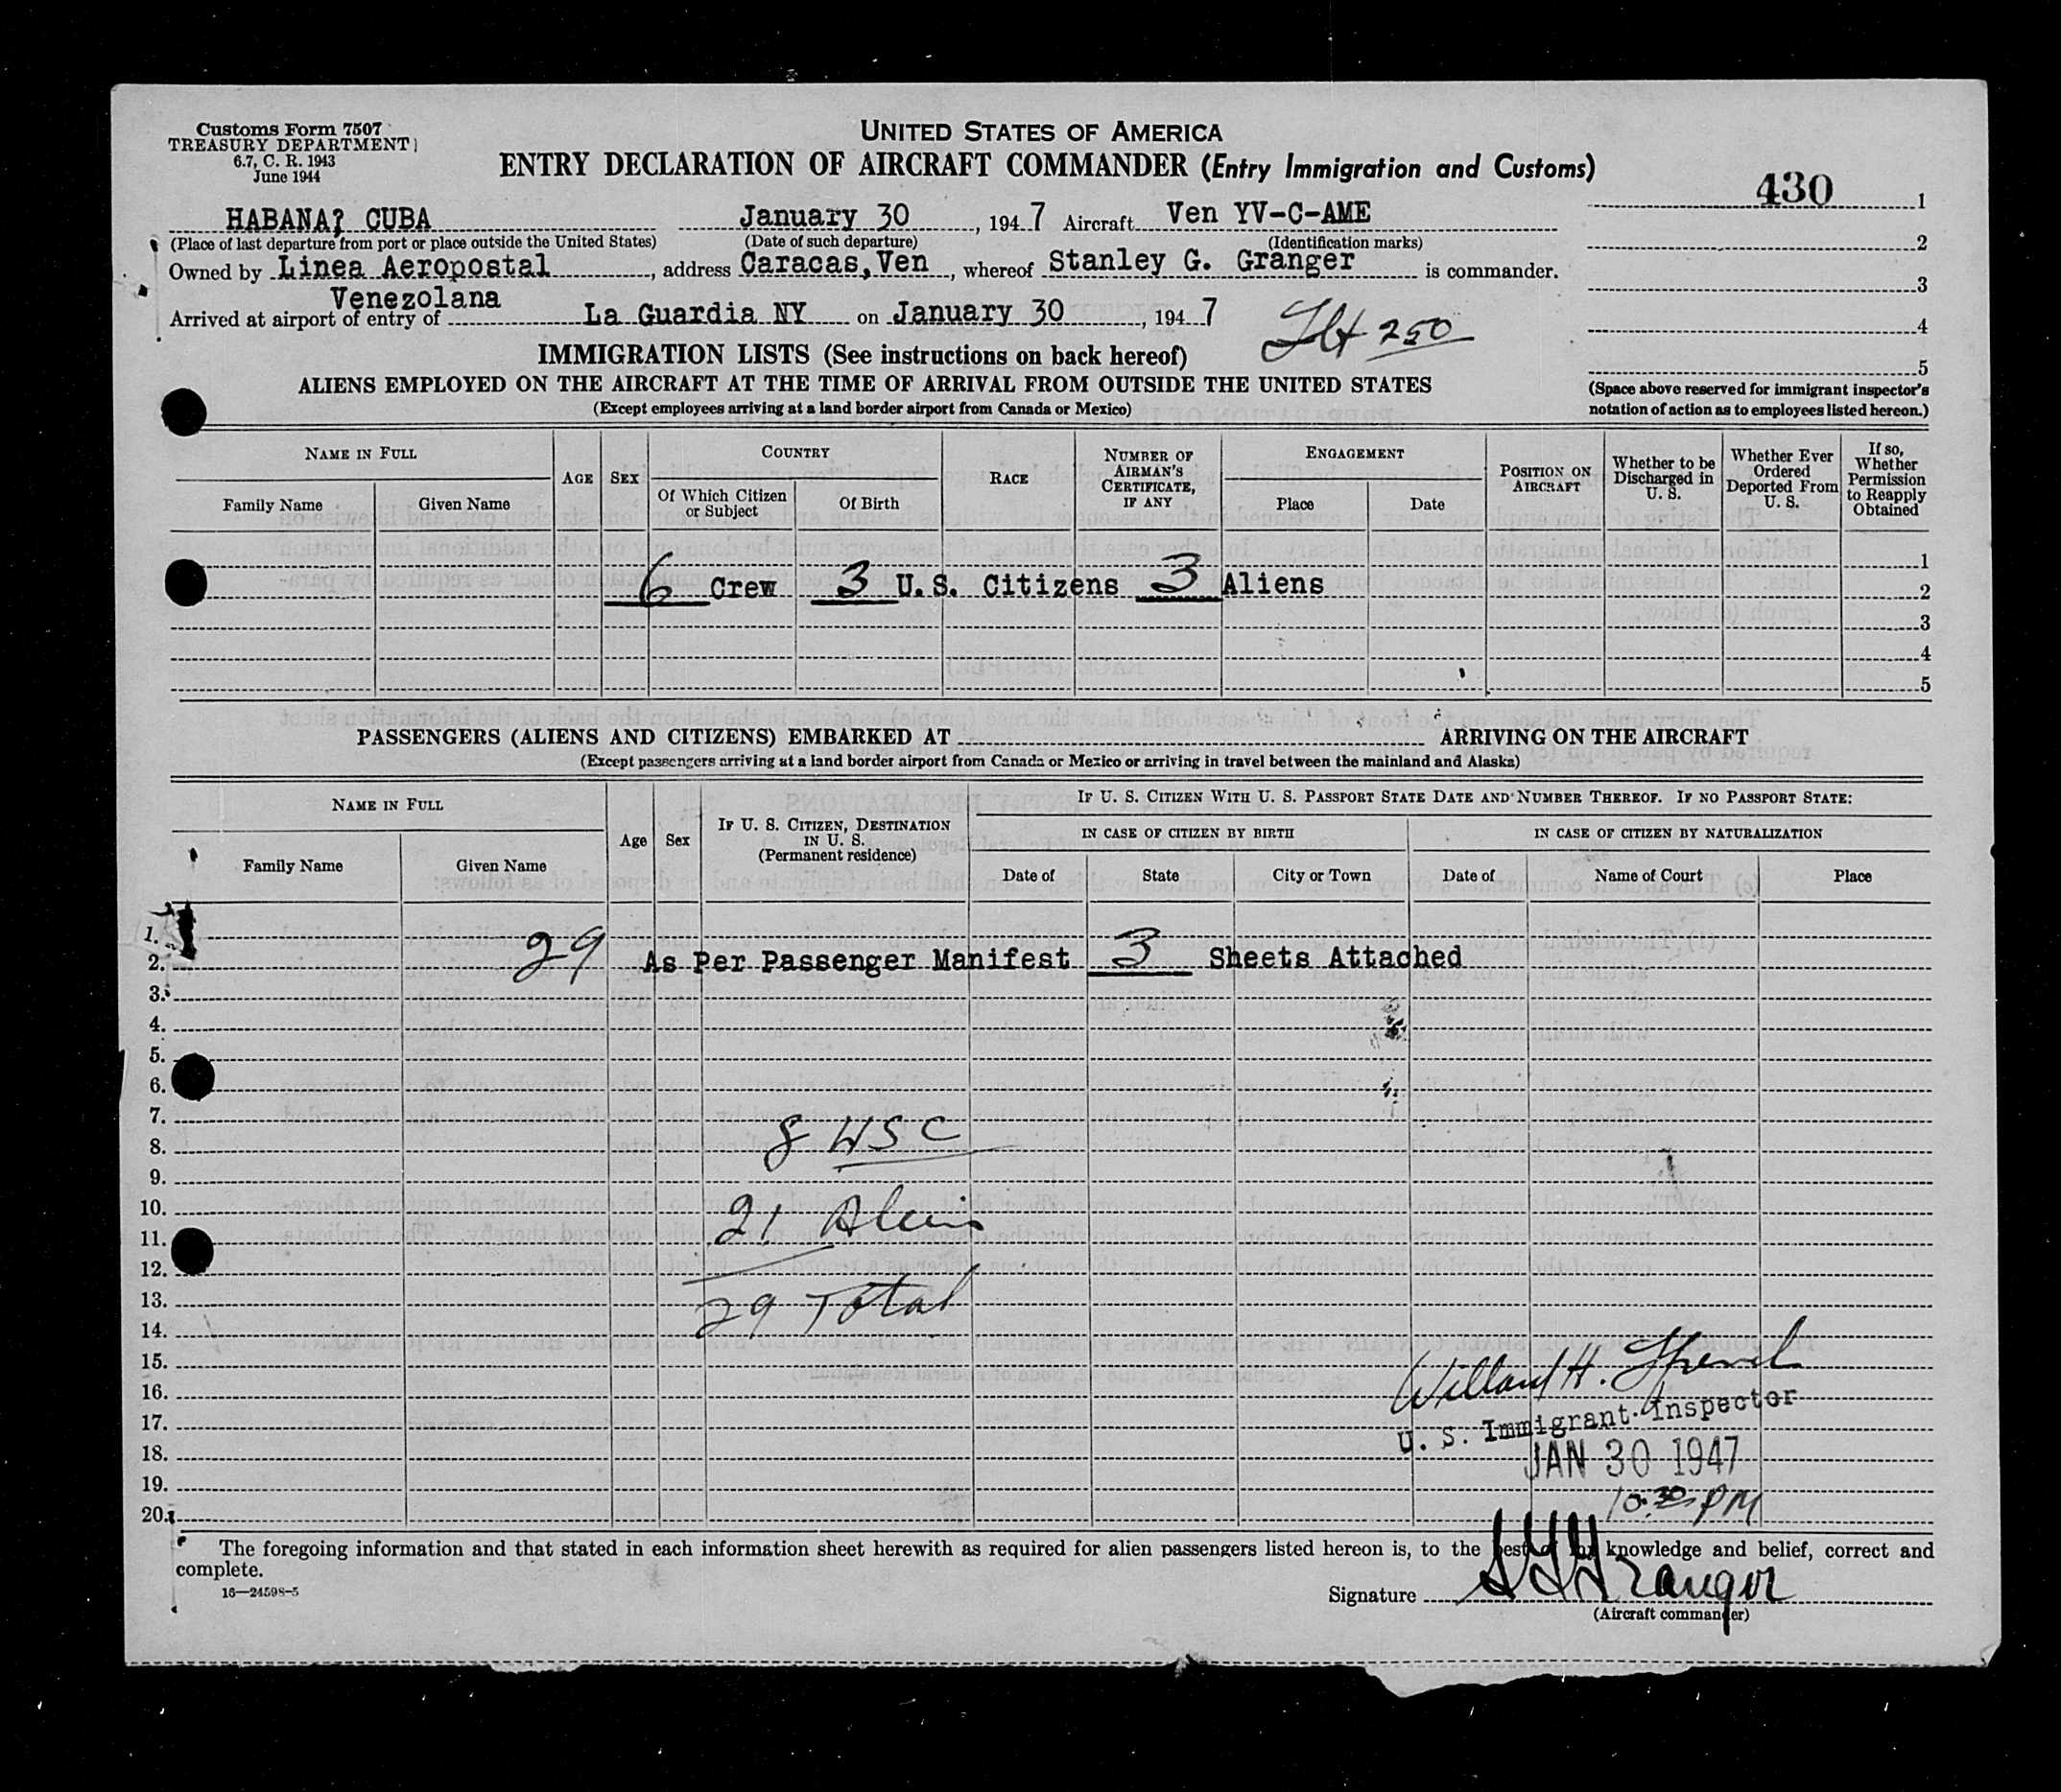 Customs Form 7507
TREASURY DEPARTMENT
6.7, C. R. 1943
June 1944
UNITED STATES OF AMERICA
ENTRY DECLARATION OF AIRCRAFT COMMANDER (Entry Immigration and Customs)
430 1
HABANA? CUBA January 30, 1947 Aircraft Ven YV-C-AME
(Place of last departure from port or place outside the United States) (Date of such departure) (Identification marks)
2
Owned by Linea Aeropostal, address Caracas, Ven, whereof Stanley G. Granger is commander.
3
Venezolana
Arrived at airport of entry of La Guardia NY on January 30, 1947
4
250
IMMIGRATION LISTS (See instructions on back hereof)
5
ALIENS EMPLOYED ON THE AIRCRAFT AT THE TIME OF ARRIVAL FROM OUTSIDE THE UNITED STATES
(Except employees arriving at a land border airport from Canada or Mexico)
(Space above reserved for immigrant inspector's
notation of action as to employees listed hereon.)
NAME IN FULL
Family Name
Given Name
AGE
SEX
COUNTRY
Of Which Citizen or Subject
Of Birth
RACE
NUMBER OF AIRMAN'S CERTIFICATE, IF ANY
ENGAGEMENT
Place
Date
POSITION ON AIRCRAFT
Whether to be Discharged in U. S.
Whether Ever Ordered Deported From U. S.
If so, Whether Permission to Reapply Obtained
1
6 Crew 3 U.S. Citizens 3 Aliens 2
3
4
5
PASSENGERS (ALIENS AND CITIZENS) EMBARKED AT ARRIVING ON THE AIRCRAFT
(Except passengers arriving at a land border airport from Canada or Mexico or arriving in travel between the mainland and Alaska)
NAME IN FULL
Family Name
Given Name
Age
Sex
IF U. S. CITIZEN, DESTINATION IN U. S.
(Permanent residence)
IF U. S. CITIZEN WITH U. S. PASSPORT STATE DATE AND NUMBER THEREOF. IF NO PASSPORT STATE:
IN CASE OF CITIZEN BY BIRTH
Date of
State
City or Town
IN CASE OF CITIZEN BY NATURALIZATION
Date of
Name of Court
Place
1.
2. 29 As Per Passenger Manifest 3 Sheets Attached
3.
4.
5.
6.
7.
8. 8 USC
9.
10.
11. 21 Aliens
12.
13.
14. 29 Total
15.
16. Willard H.
17. U. S. Immigrant Inspector
18. JAN 30 1947
19.
20. 10:30 PM
The foregoing information and that stated in each information sheet herewith as required for alien passengers listed hereon is, to the best of my knowledge and belief, correct and
complete.
16—24598-5
Signature S G Granger
(Aircraft commander)